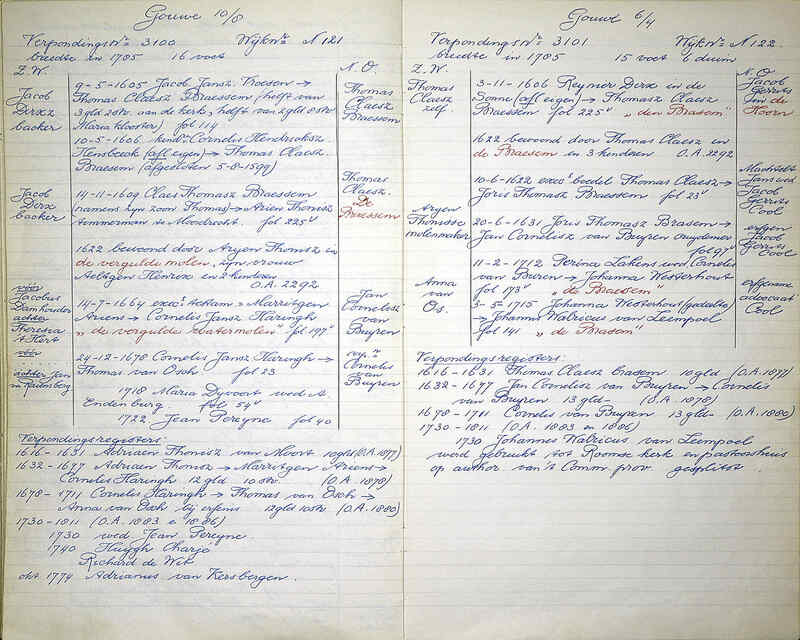 Gouwe 10/8
Verpondings No 3100 Wijk No N 121
breedte in 1785 16 voet
Z.W. N.O.
Jacob
Dirxz
backer
9-5-1605 Jacob Jansz. Vroesen →
Thomas Claesz Braessem (helft van
3 gld 2 str. aan de kerk, helft van 2 gld 8 str
Maria klooster) fol 114
10-5-1606 kind: Cornelis Hendricksz.
Hensbeeck (afl eigen) → Thomas Claesz.
Braesem (afgesloten 5-8-1597)
Thomas
Claesz
Braessem
Jacob
Dirx
backer
14-11-1609 Claes Thomasz Braessem
(namens zijn zoon Thomas) → Arien Thonisz
timmerman te Moordrecht. fol 225v
Thomas
Claesz.
De
Braessem
1622 bewoond door Aryen Thonisz in
de vergulde molen, zijn vrouw
Aeltgen Henrix en 2 kinderen
O.A. 2292
vóór
Jacobus
Damhouder
achter
Theresia
't Hert
14-7-1664 execr testam → Marritgen
Ariens → Cornelis Jansz Haringh
„ de vergulde watermolen" fol 197v
Jan
Cornelisz
van
Buyren
vóór
achter Jan
in Rattenberg
24-12-1678 Cornelis Jansz Haringh →
Thomas van Osch fol 23
Cornelis
van
Buyren
1718 Maria Dyvoort wed A.
Endenburg fol 54v
1722 Jean Pereyne fol 40
Verpondingsregisters:
1616-1631 Adriaen Thonisz van Moort 10 gld (O.A. 1877)
1632-1677 Adriaen Thonisz → Marritgen Ariens →
Cornelis Haringh 12 gld 10 str. (O.A. 1878)
1678-1711 Cornelis Haringh → Thomas van Osch →
Anna van Osch bij erfenis 12 gld 10 str (O.A. 1880)
1730-1811 (O.A. 1883 e 1886)
1730 wed Jean Pereyne
1740 Huygh Charjo
Richard de Wit
okt. 1774 Adrianus van Kersbergen.
Gouwe 6/4
Verpondings No 3101 Wijk No N 122
breedte in 1785 15 voet 6 duim
Z.W. N.O
Thomas
Claesz
zelf.
3-11-1606 Reyner Dirx in de
Donne (afl eigen) → Thomasz Claesz
Braesem fol 225v „ den Brasem"
Jacob
Gerrits
in de
Hoorn
1622 bewoond door Thomas Claesz in
de Braesem en 3 kinderen O.A. 2292
10-6-1622 execr boedel Thomas Claesz →
Joris Thomasz Braesem fol 23v
Machtelt
Jans wed
Jacob
Gerrits
Cool
Aryen
Thonisse
molenmaker
20-6-1631 Joris Thomasz Brasem →
Jan Cornelisz van Buyren cruydenier
fol 97v
erfgen
Jacob
Gerrits
Cool
Anna
van
Os.
11-2-1712 Perina Lakens wed Cornelis
van Bueren → Johanna Westerhout
fol 173v „ de Braesem"
3-5-1715 Johanna Westerhout (gedeelte)
→ Johanna Walricus van Leempoel
fol 141 „ de Brasem"
erfgename
advocaat
Cool
Verpondingsregisters:
1616-1631 Thomas Claesz brasem 10 gld (O.A. 1877)
1632-1677 Jan Cornelisz van Buyren → Cornelis
van Buyren 13 gld- (O.A. 1878)
1678-1711 Cornelis van Buyren 13 gld- (O.A. 1880)
1730-1811 (O.A. 1883 en 1886)
1730 Johannes Walricus van Leempoel
werd gebruikt tot Roomse kerk en pastoorshuis
op author. van 't Comm prov gesplitst.